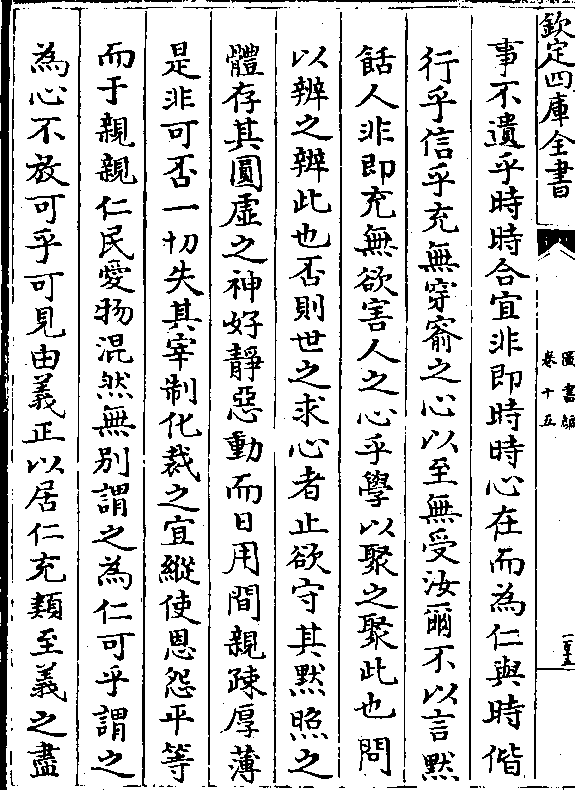 欽定四庫全書
圖書編
卷十五
事不遺乎時時合宜非即時時心在而為仁與時偕
行乎信乎充無穿窬之心以至無受汝爾不以言黙
餂人非即充無欲害人之心乎學以聚之聚此也問
以辨之辨此也否則世之求心者止欲守其黙照之
體存其圓虛之神好靜惡動而日用間親疎厚薄
是非可否一切失其宰制化裁之宜縱使恩怨平等
而于親親仁民愛物混然無別謂之為仁可乎謂之
為心不放可乎可見由義正以居仁充類至義之盡